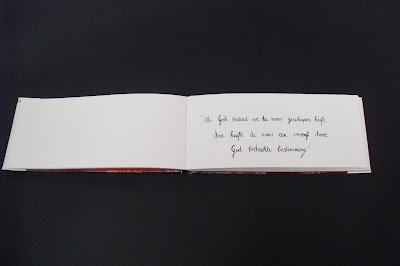 'Als God bestaat en de mens geschapen heeft
dan heeft de mens een vooraf door
God bedachte bestemming.'